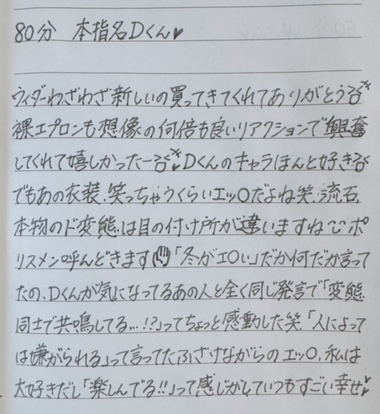 80分 本指名Dくん♥
ウィダーわざわざ新しいの買ってきてくれてありがとう
裸エプロンも想像の何倍も良いリアクションで興奮
してくれて嬉しかったー Dくんのキャラほんと好き
でもあの衣装、笑っちゃうくらいエッOだよね笑 流石、
本物のド変態は目の付け所が違いますね〜ポ
リスメン呼んどきます「冬がエOい」だか何だか言って
たの、Dくんが気になってるあの人と全く同じ発言で「変態
同士で共鳴してる…!?」ってちょっと感動した笑「人によって
は嫌がられる」って言ってたふざけながらのエッO、私は
大好きだし「楽しんでる!!」って感じがしていつもすごい幸せ♥